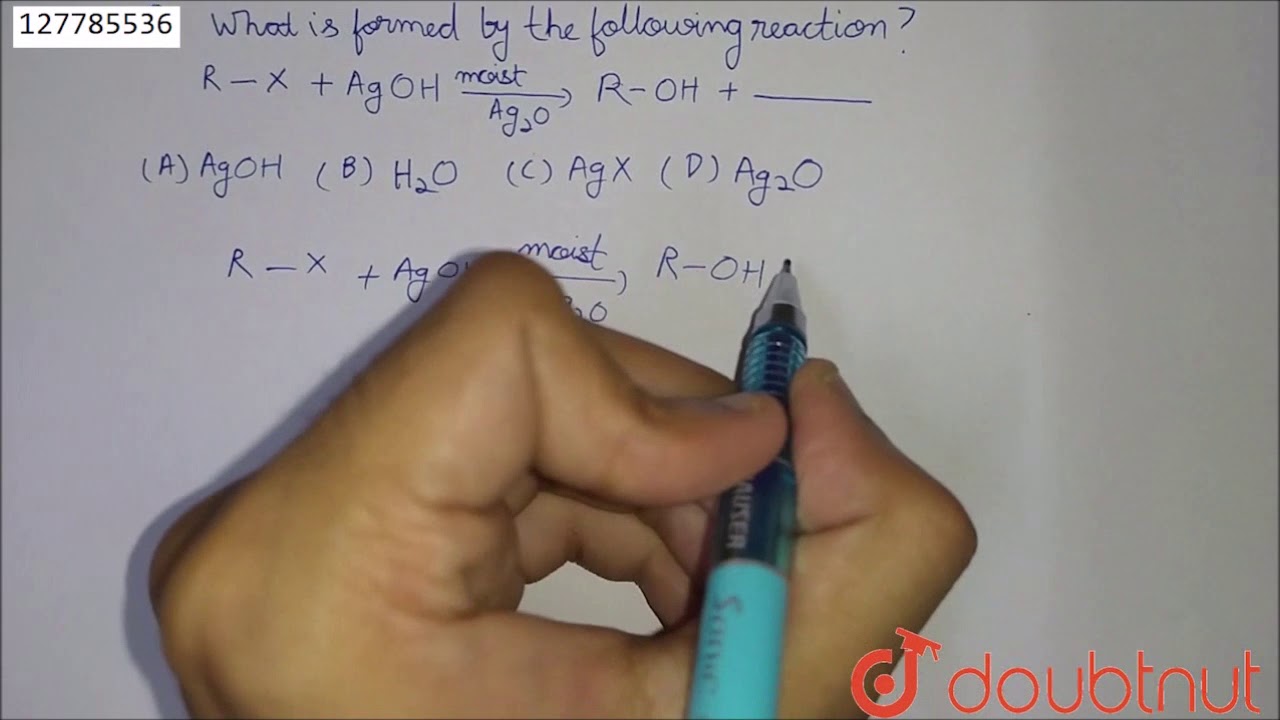 127785536
What is formed by the following reaction?
R - X + AgOH moist R-OH + ______
Ag₂O
(A) AgOH (B) H₂O (C) AgX (D) Ag₂O
R - X + moist R-OH
doubtnut